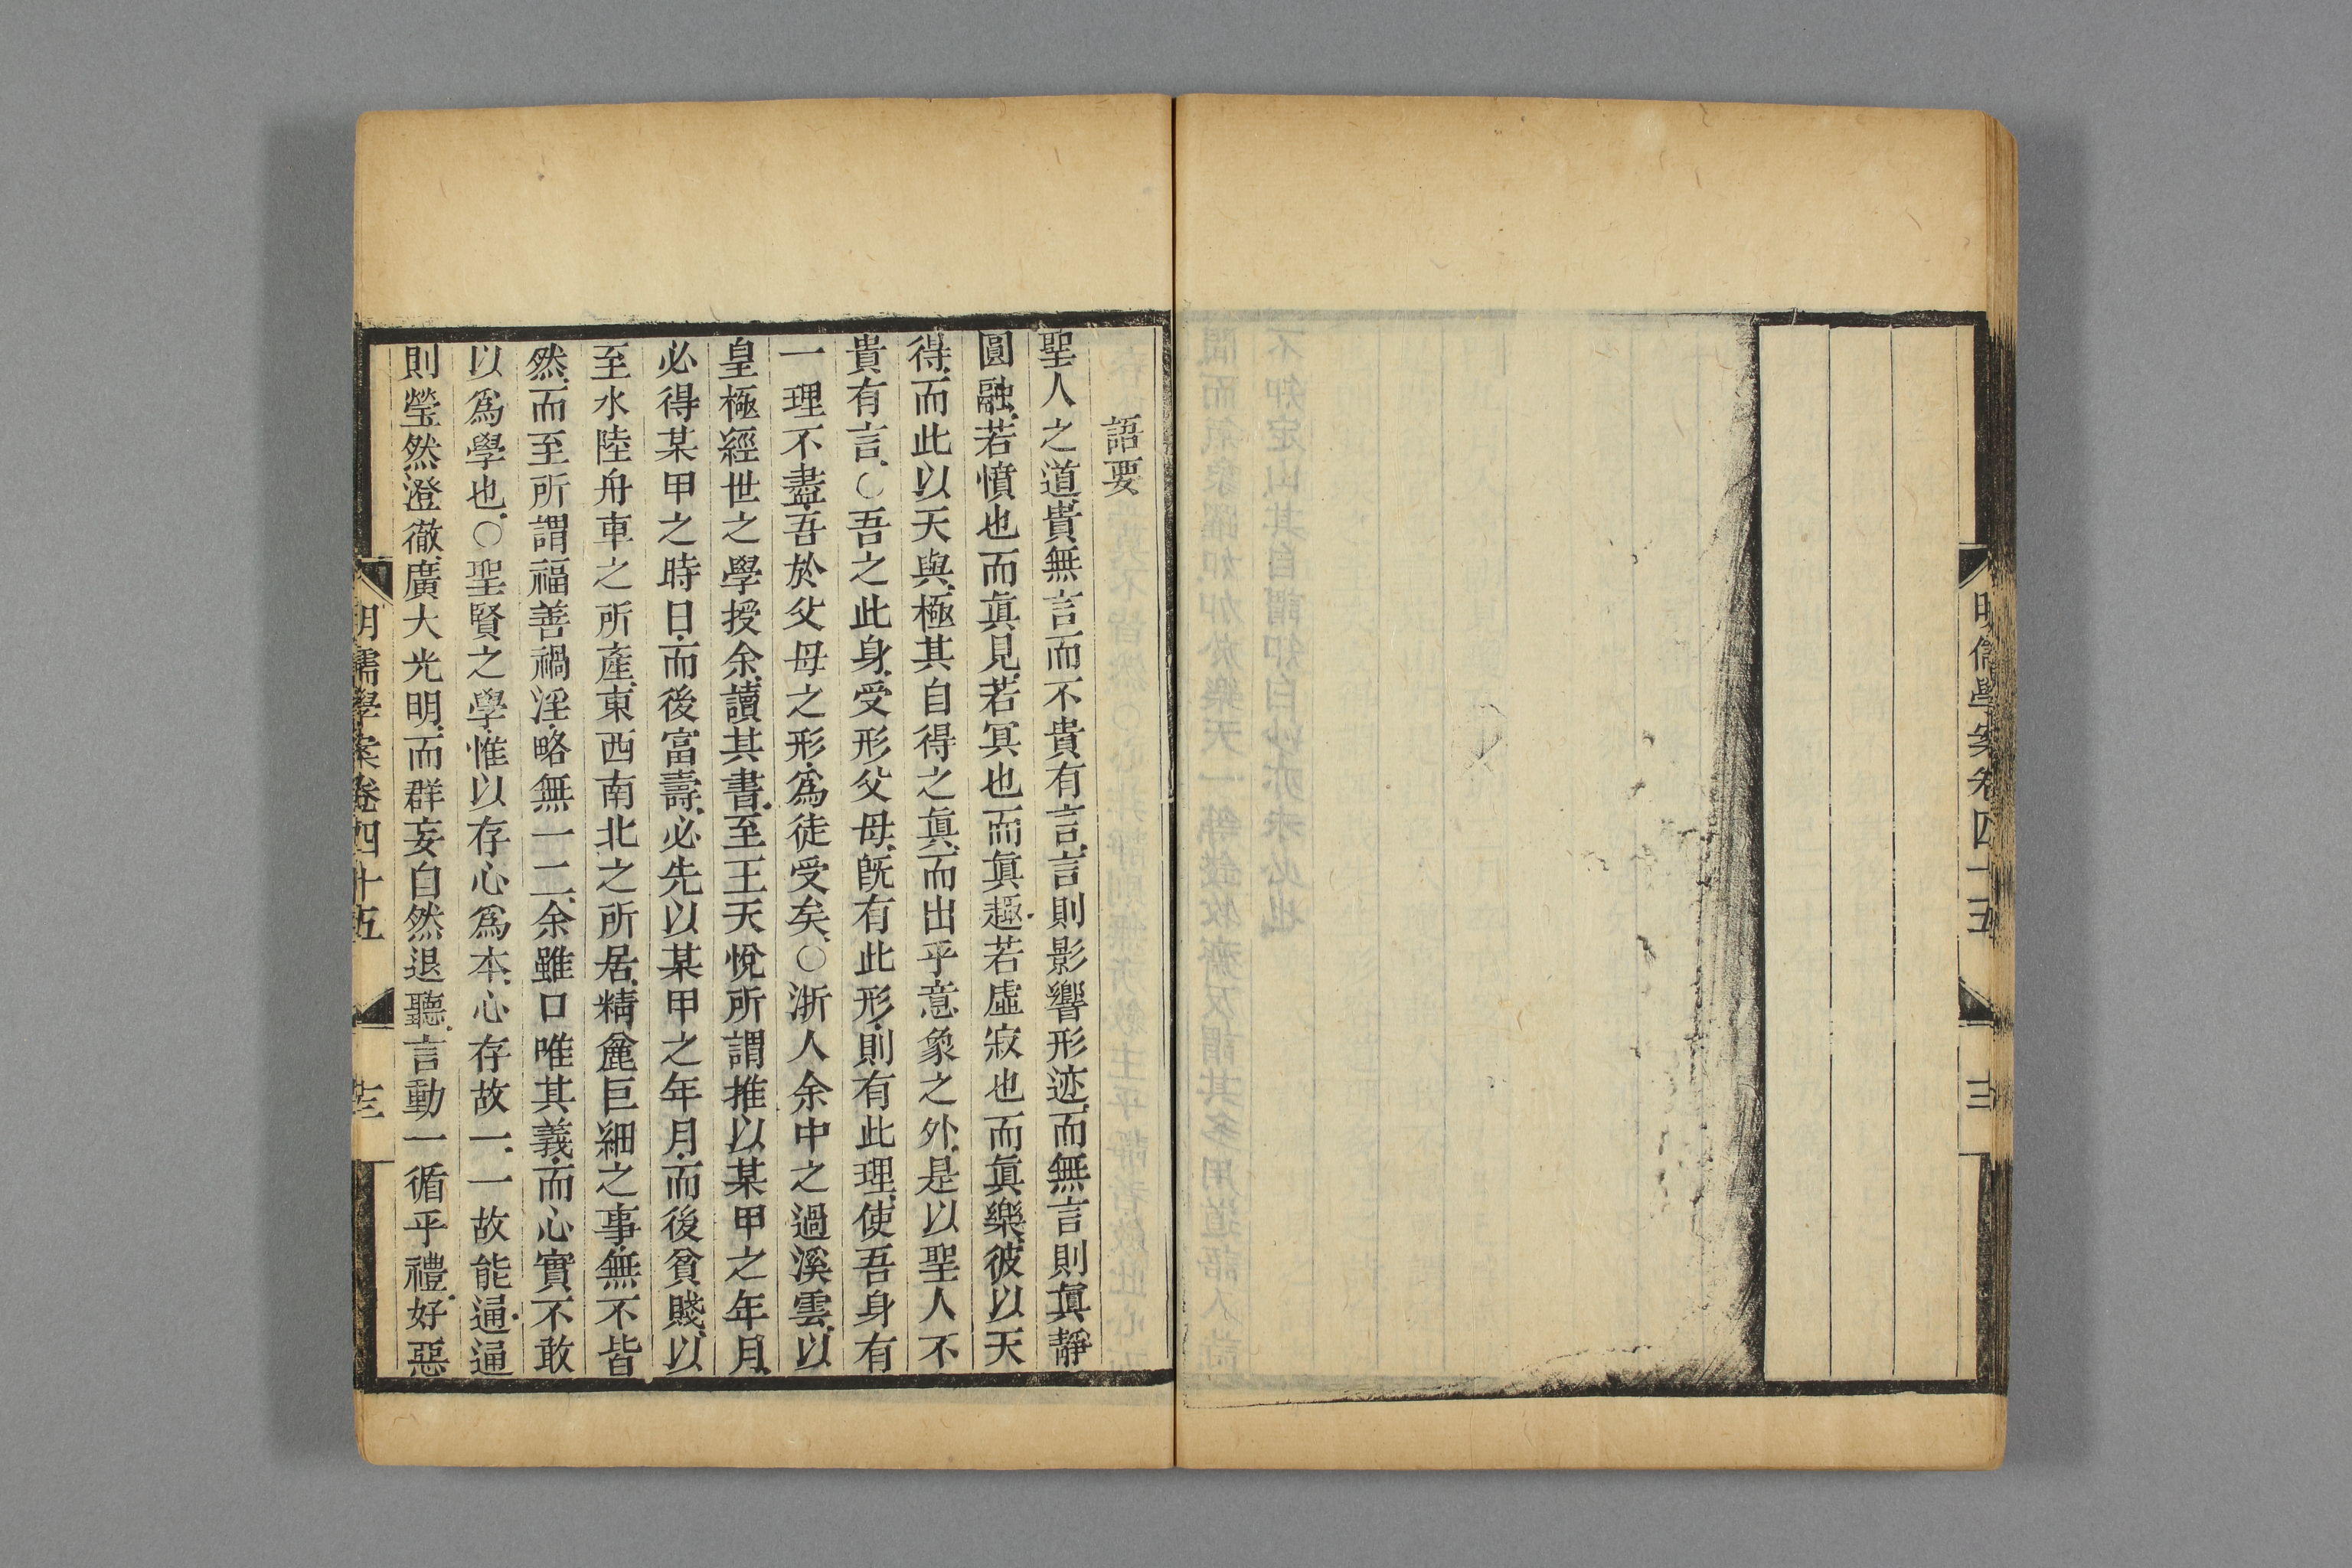 明儒學案卷四十五
語要
聖人之道貴無言而不貴有言言則影響形迹而無言則眞靜
圓融若憤也而眞見若冥也而眞趣若虛寂也而眞樂彼以天
得而此以天與極其自得之眞而出乎意象之外是以聖人不
貴有言○吾之此身受形父母旣有此形則有此理使吾身有
一理不盡吾於父母之形爲徒受矣○浙人余中之過溪雲以
皇極經世之學授余讀其書至王天悅所謂推以某甲之年月
必得某甲之時日而後富壽必先以某甲之年月而後貧賤以
至水陸舟車之所產東西南北之所居精麄巨細之事無不皆
然而至所謂福善禍淫略無一二余雖口唯其義而心實不敢
以爲學也○聖賢之學惟以存心爲本心存故一一故能通通
則瑩然澄徹廣大光明而群妄自然退聽言動一循乎禮好惡
明儒學案卷四十五